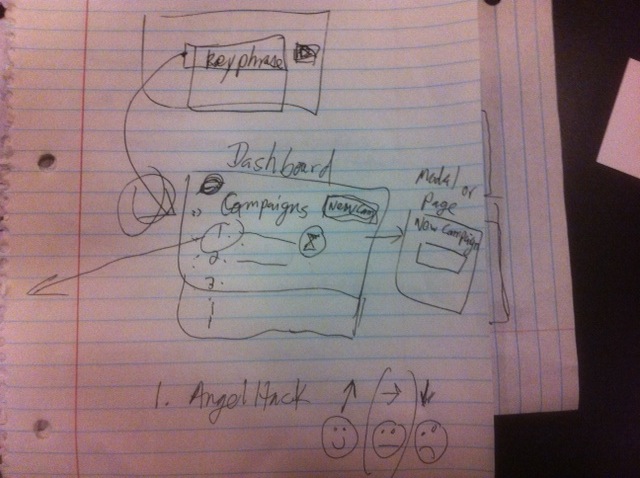 Keyphrase
Dashboard
Campaigns
1.
2.
3.
Modal or
Page
New Campaign
1. AngelHack